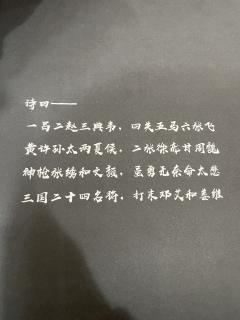 诗曰——
一吕二赵三典韦，四关五马六张飞
黄许孙太两夏侯，二张徐庞甘周魏
神枪张绣和文颜，虽勇无奈命太悲
三国二十四名将，打末邓艾和姜维